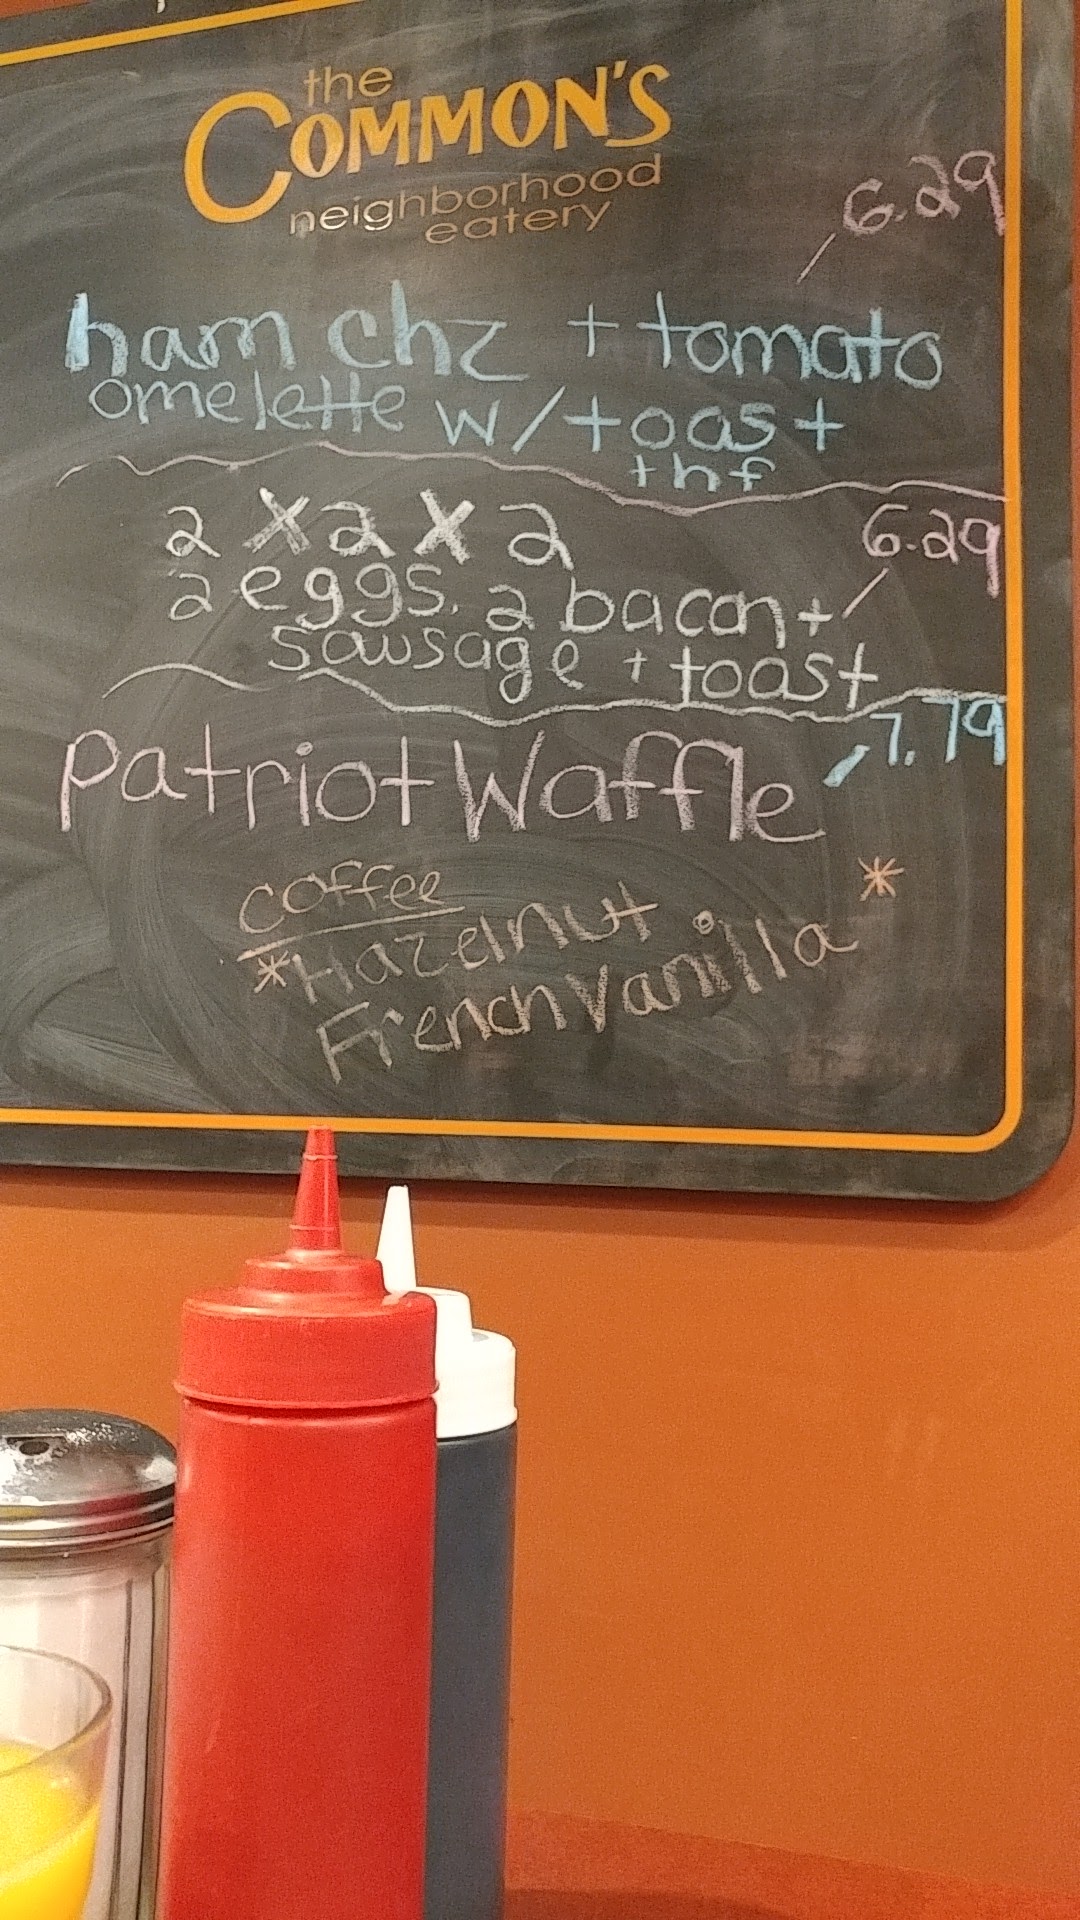 the
COMMON'S
neighborhood
eatery
6.29
ham chz + tomato
omelette w/toast
+hf
2 X 2 X 2
6.29
2 eggs, 2 bacon +
sausage + toast
7.79
Patriot Waffle
coffee
*Hazelnut
French Vanilla *